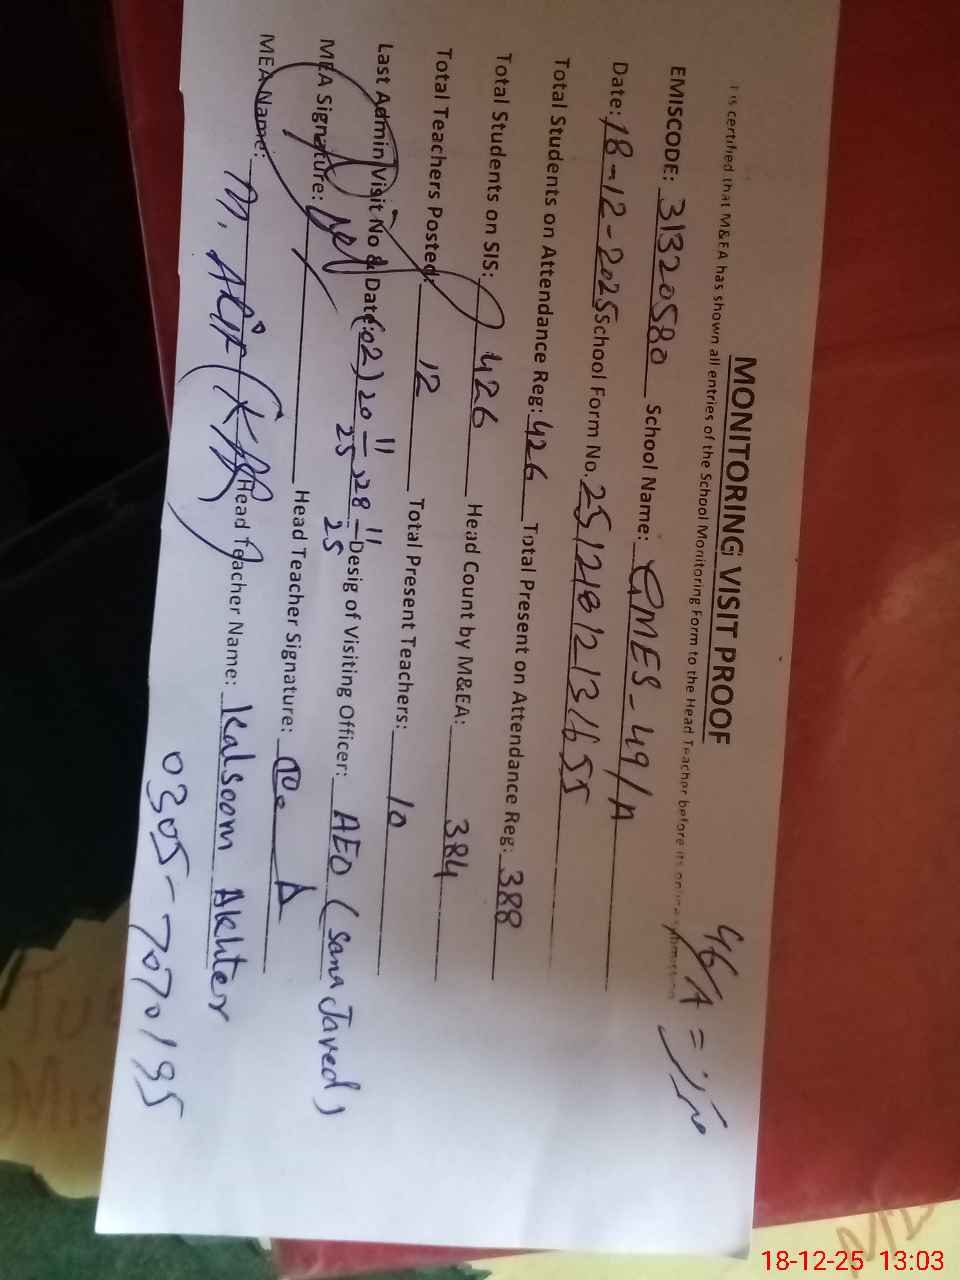 46/A =
MONITORING VISIT PROOF
is certified that M&EA has shown all entries of the School Monitoring Form to the Head Teacher before its online submission
EMISCODE: 31320580 School Name: GMES-49/A
Date: 18-12-2025 School Form No. 25121812131655
Total Students on Attendance Reg: 426 Total Present on Attendance Reg: 388
Total Students on SIS: 426 Head Count by M&EA: 384
Total Teachers Posted: 12 Total Present Teachers: 10
Last Admin Visit No & Date: (02) 20 11 25, 28 11 25 Desig of Visiting Officer: AEO (Sana Javed)
MEA Signature: Head Teacher Signature:
MEA Name: M. Head Teacher Name: Kalsoom Akhter
0305-7070195
18-12-25 13:03